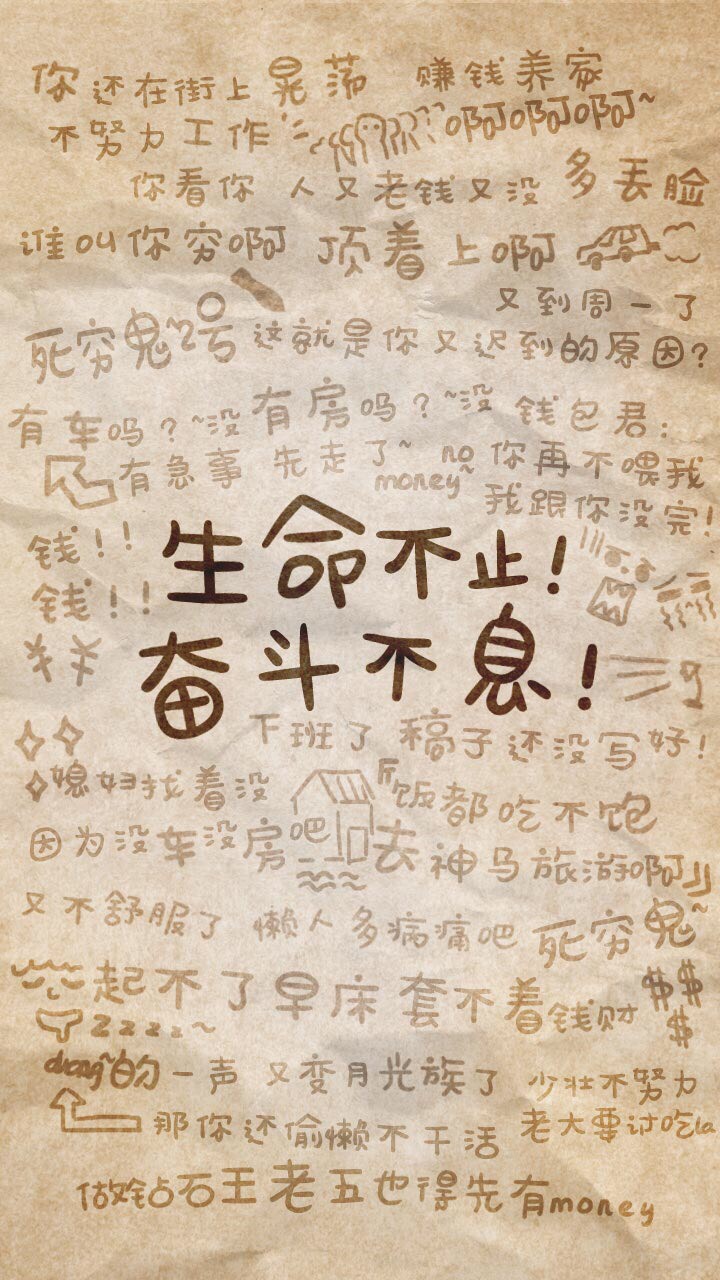 你还在街上晃荡 赚钱养家
不努力工作 啊啊啊~
你看你 人又老钱又没 多丢脸
谁叫你穷啊 顶着上啊
又到周一了
死穷鬼~2号 这就是你又迟到的原因?
有车吗?~没有房吗?~没 钱包君:
有急事 先走了~ no money~ 你再不喂我
我跟你没完!
钱!!
钱!!
¥¥
生命不止!
奋斗不息!
下班了 稿子还没写好!
媳妇找着没 饭都吃不饱
因为没车没房吧 去神马旅游啊
又不舒服了 懒人多病痛吧 死穷鬼~
起不了早床 套不着钱财 $$$
zzzz~
duang~的一声 又变月光族了 少壮不努力
那你还偷懒不干活 老大要讨吃la
做钻石王老五也得先有money